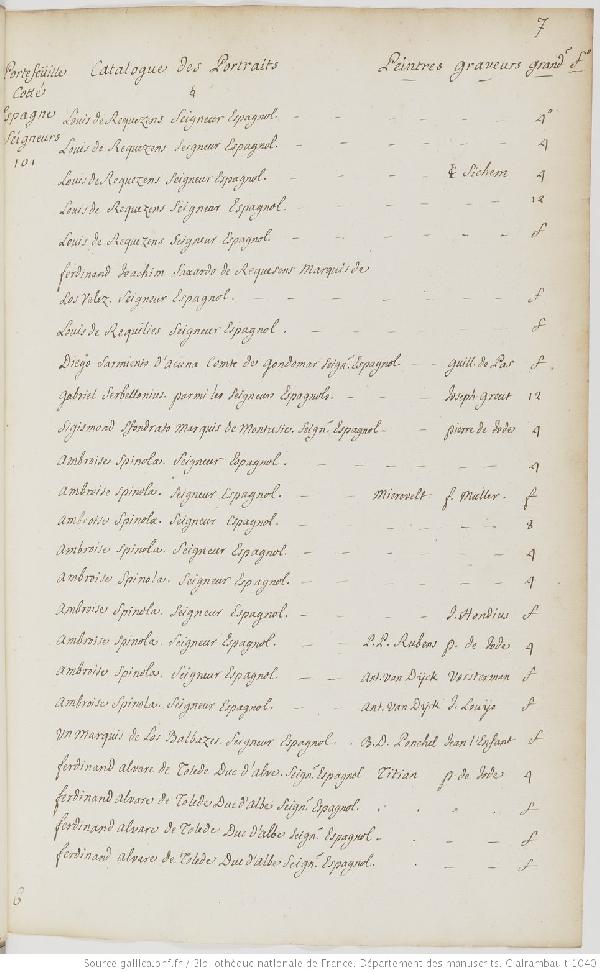 7
Portefeüille Catalogue des Portraits Peintres graveurs grandr fo
Cotté 4
Espagne Louis de Requezens Seigneur Espagnol. 4o
Seigneurs Louis de Requezens Seigneur Espagnol. 4
101
Louis de Requezens Seigneur Espagnol. Sichem 4
Louis de Requezens Seigneur Espagnol. 12
Louis de Requezens Seigneur Espagnol. f
ferdinand Joachim faxardo de Requesens Marquis de
Los Velez. Seigneur Espagnol. f
Louis de Requilies Seigneur Espagnol. f
Diego Sarmiento d'Acuna Comte de Gondomar Seign.r Espagnol guill. de Pas f.
gabriel Serbellonius. parmi les Seigneurs Espagnols. Joseph Greut 12
Sigismond Sfondrato Marquis de Montasie. Seign.r Espagnol. pierre de Jode 4
Ambroise Spinola. Seigneur Espagnol. 4
Ambroise Spinola. Seigneur Espagnol. Mierevelt f. Muller. f
Ambroise Spinola. Seigneur Espagnol. 8
Ambroise Spinola. Seigneur Espagnol. 4
Ambroise Spinola. Seigneur Espagnol. 4
Ambroise Spinola. Seigneur Espagnol. J. Hondius f
Ambroise Spinola. Seigneur Espagnol. P. P. Rubens p. de Jode 4
Ambroise Spinola. Seigneur Espagnol Ant. van Dijck Vorsterman f
Ambroise Spinola. Seigneur Espagnol. Ant. van Dijck J. Louijs f
un Marquis de Los Balbazes. Seigneur Espagnol. B. D. Ponchel Jean l'Enfant f
ferdinand Alvare de Tolede Duc d'alve. Seign.r Espagnol Titian p. de Jode 4
ferdinand Alvare de Tolede Duc d'albe Seign.r Espagnol. f
ferdinand alvare de Tolede Duc d'albe Seign.r Espagnol. f
ferdinand alvare de Tolede Duc d'albe Seign.r Espagnol. f
6
Source gallica.bnf.fr / Bibliothèque nationale de France. Département des manuscrits. Clairambault 1040